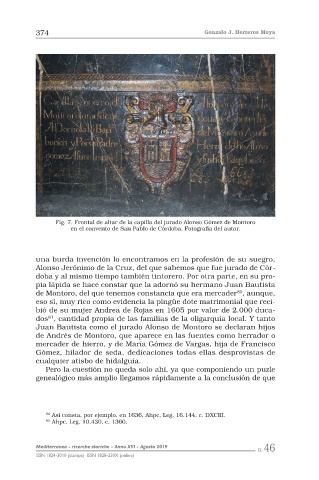 374
Gonzalo J. Herreros Moya
Fig. 7. Frontal de altar de la capilla del jurado Alonso Gómez de Montoro
en el convento de San Pablo de Córdoba. Fotografía del autor.
una burda invención lo encontramos en la profesión de su suegro,
Alonso Jerónimo de la Cruz, del que sabemos que fue jurado de Cór-
doba y al mismo tiempo también tintorero. Por otra parte, en su pro-
pia lápida se hace constar que la adornó su hermano Juan Bautista
de Montoro, del que tenemos constancia que era mercader⁸⁴, aunque,
eso sí, muy rico como evidencia la pingüe dote matrimonial que reci-
bió de su mujer Andrea de Rojas en 1605 por valor de 2.000 duca-
dos⁸⁵, cantidad propia de las familias de la oligarquía local. Y tanto
Juan Bautista como el jurado Alonso de Montoro se declaran hijos
de Andrés de Montoro, que aparece en las fuentes como herrador o
mercader de hierro, y de María Gómez de Vargas, hija de Francisco
Gómez, hilador de seda, dedicaciones todas ellas desprovistas de
cualquier atisbo de hidalguía.
Pero la cuestión no queda solo ahí, ya que componiendo un puzle
genealógico más amplio llegamos rápidamente a la conclusión de que
⁸⁴ Así consta, por ejemplo, en 1636, Ahpc, Leg. 16.144, c. DXCIII.
⁸⁵ Ahpc, Leg. 10.430, c. 1360.
Mediterranea - ricerche storiche - Anno XVI - Agosto 2019
n. 46
ISSN 1824-3010 (stampa) ISSN 1828-230X (online)